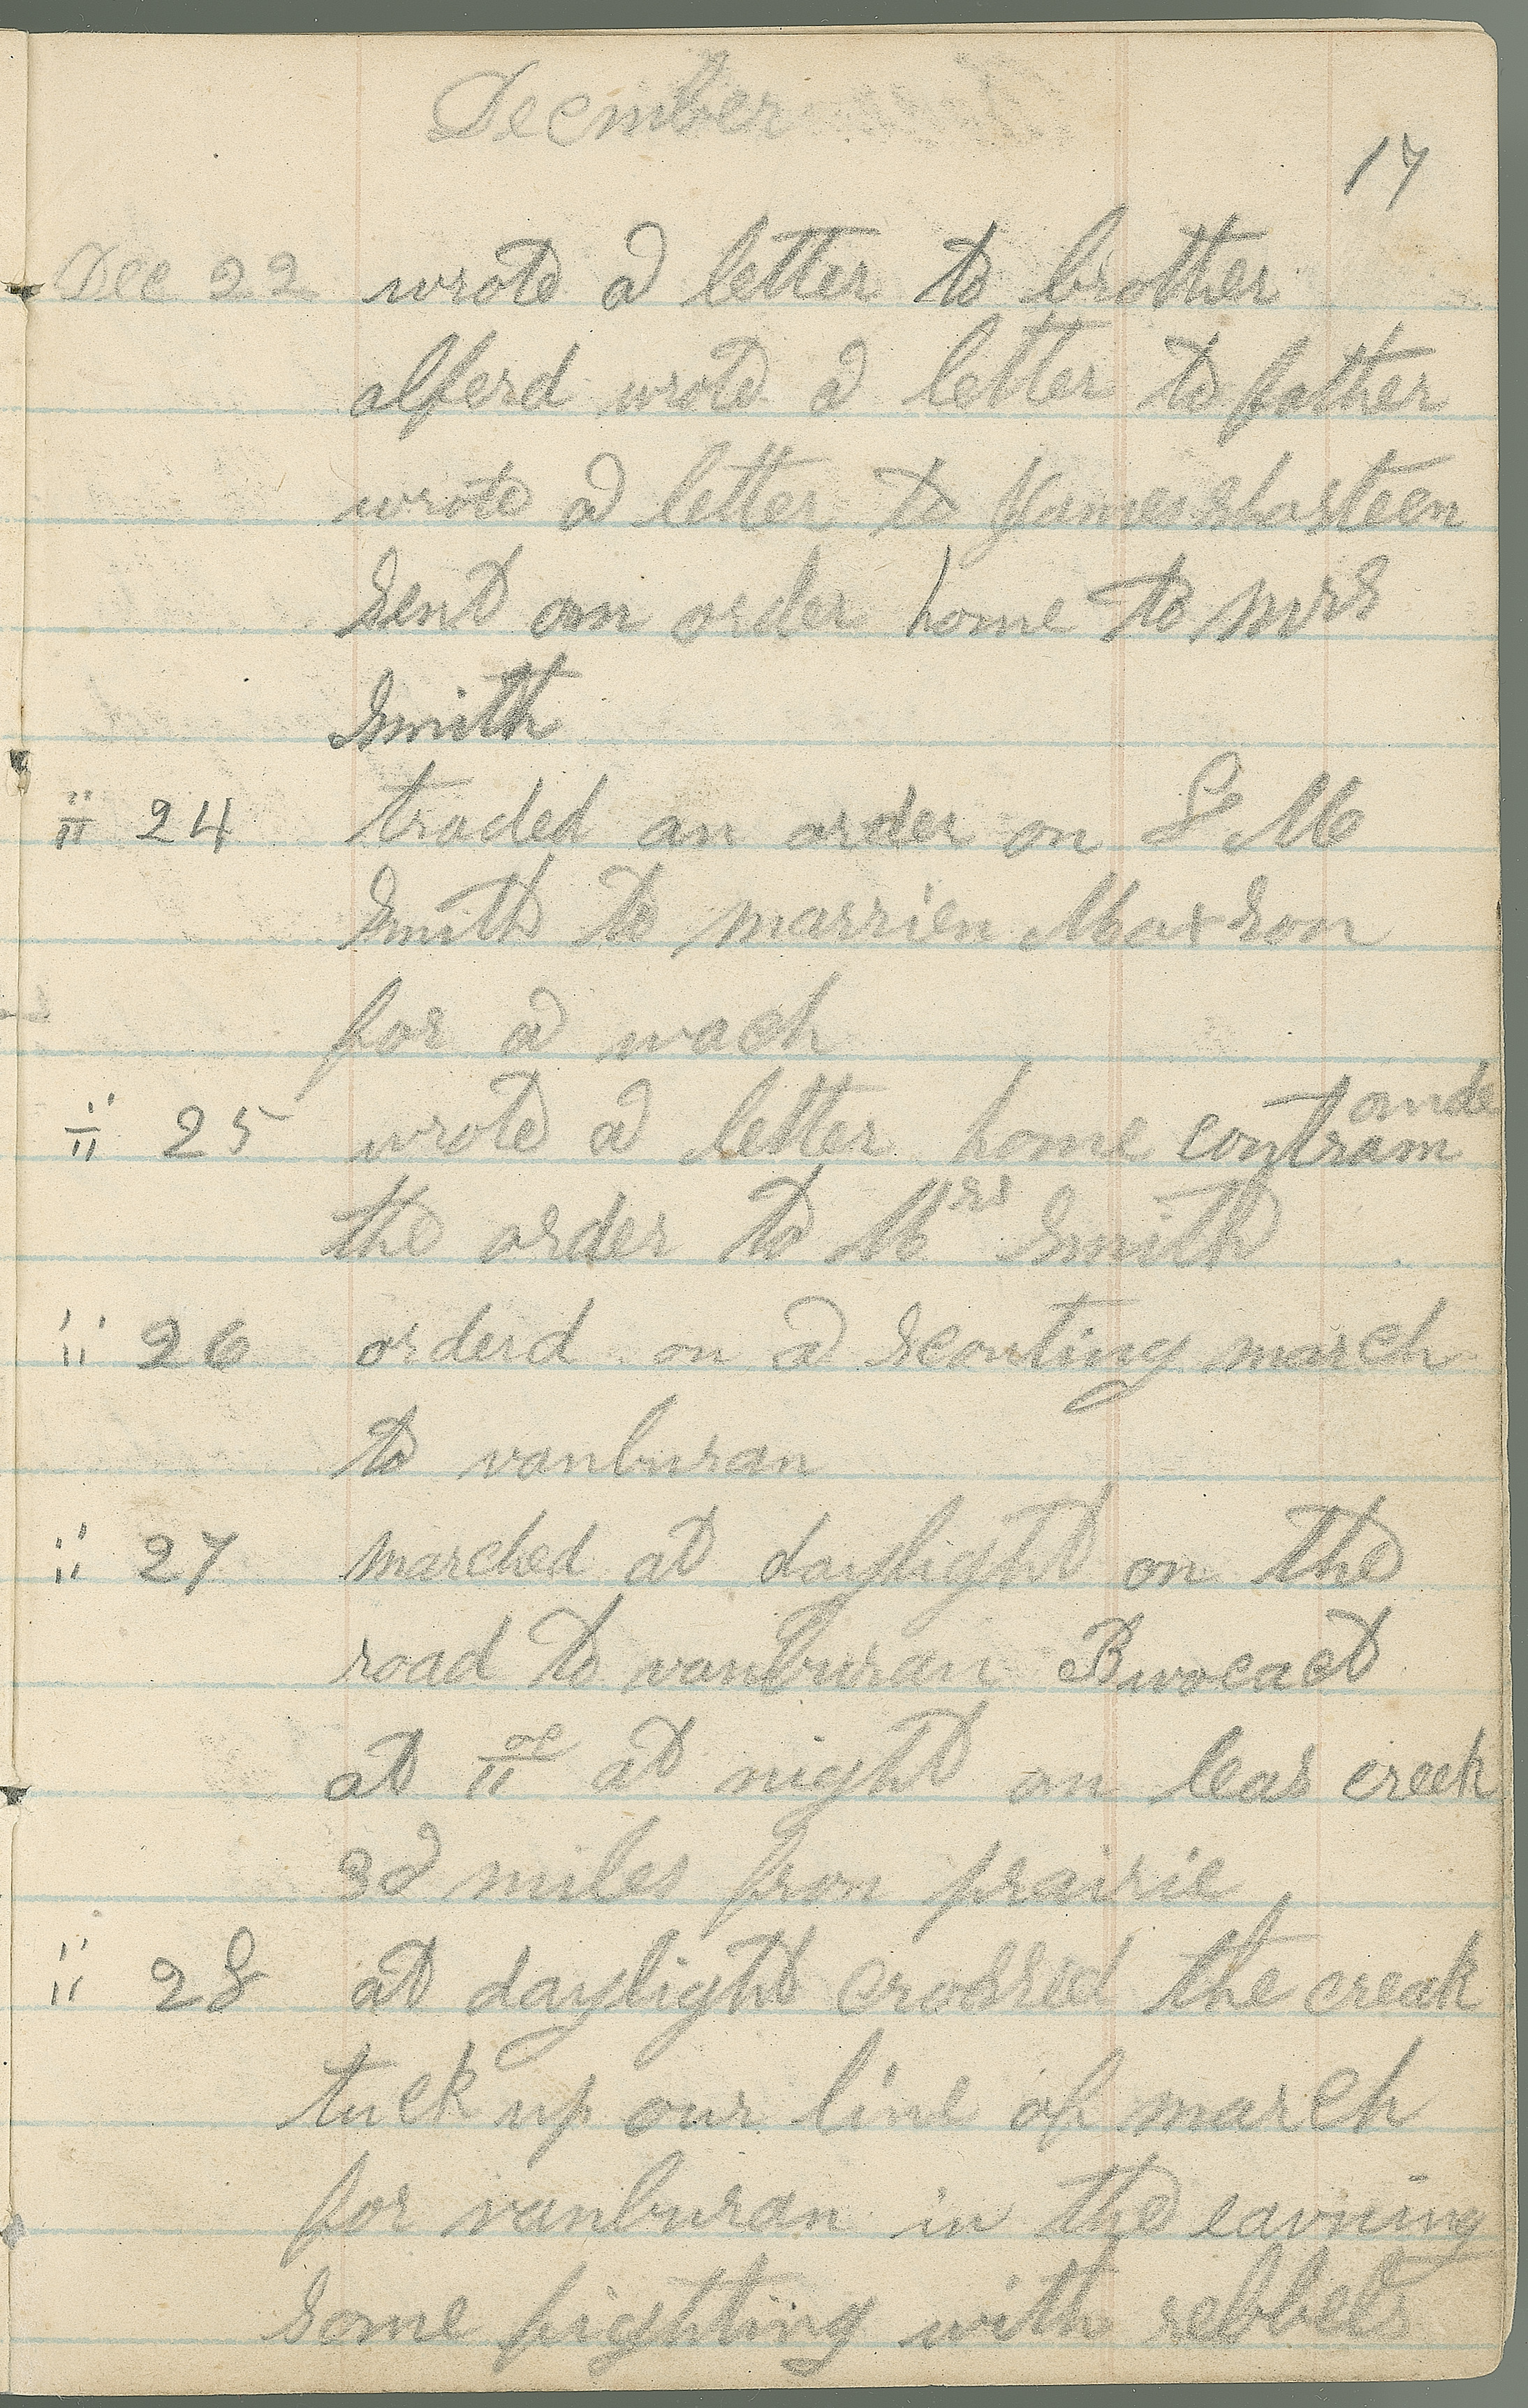 December
17
Dec 22 wrote a letter to brother
alferd wrote a letter to father
wrote a letter to James shasteen
Send an order home to mrs
Smith
" 24 traded an order on S M
Smith to marrien Maxson
for a wach
" 25 wrote a letter home contram ande
the order to Mrs Smith
" 26 orderd on a Scouting march
to vanburan
" 27 marched at daylight on the
road to vanburan Bivocact
at 11 oc at night on leas creek
32 miles fron prairie
" 28 at daylight crossed the creak
tuck up our line of march
for vanburan in the eavning
Some fighting with rebbels